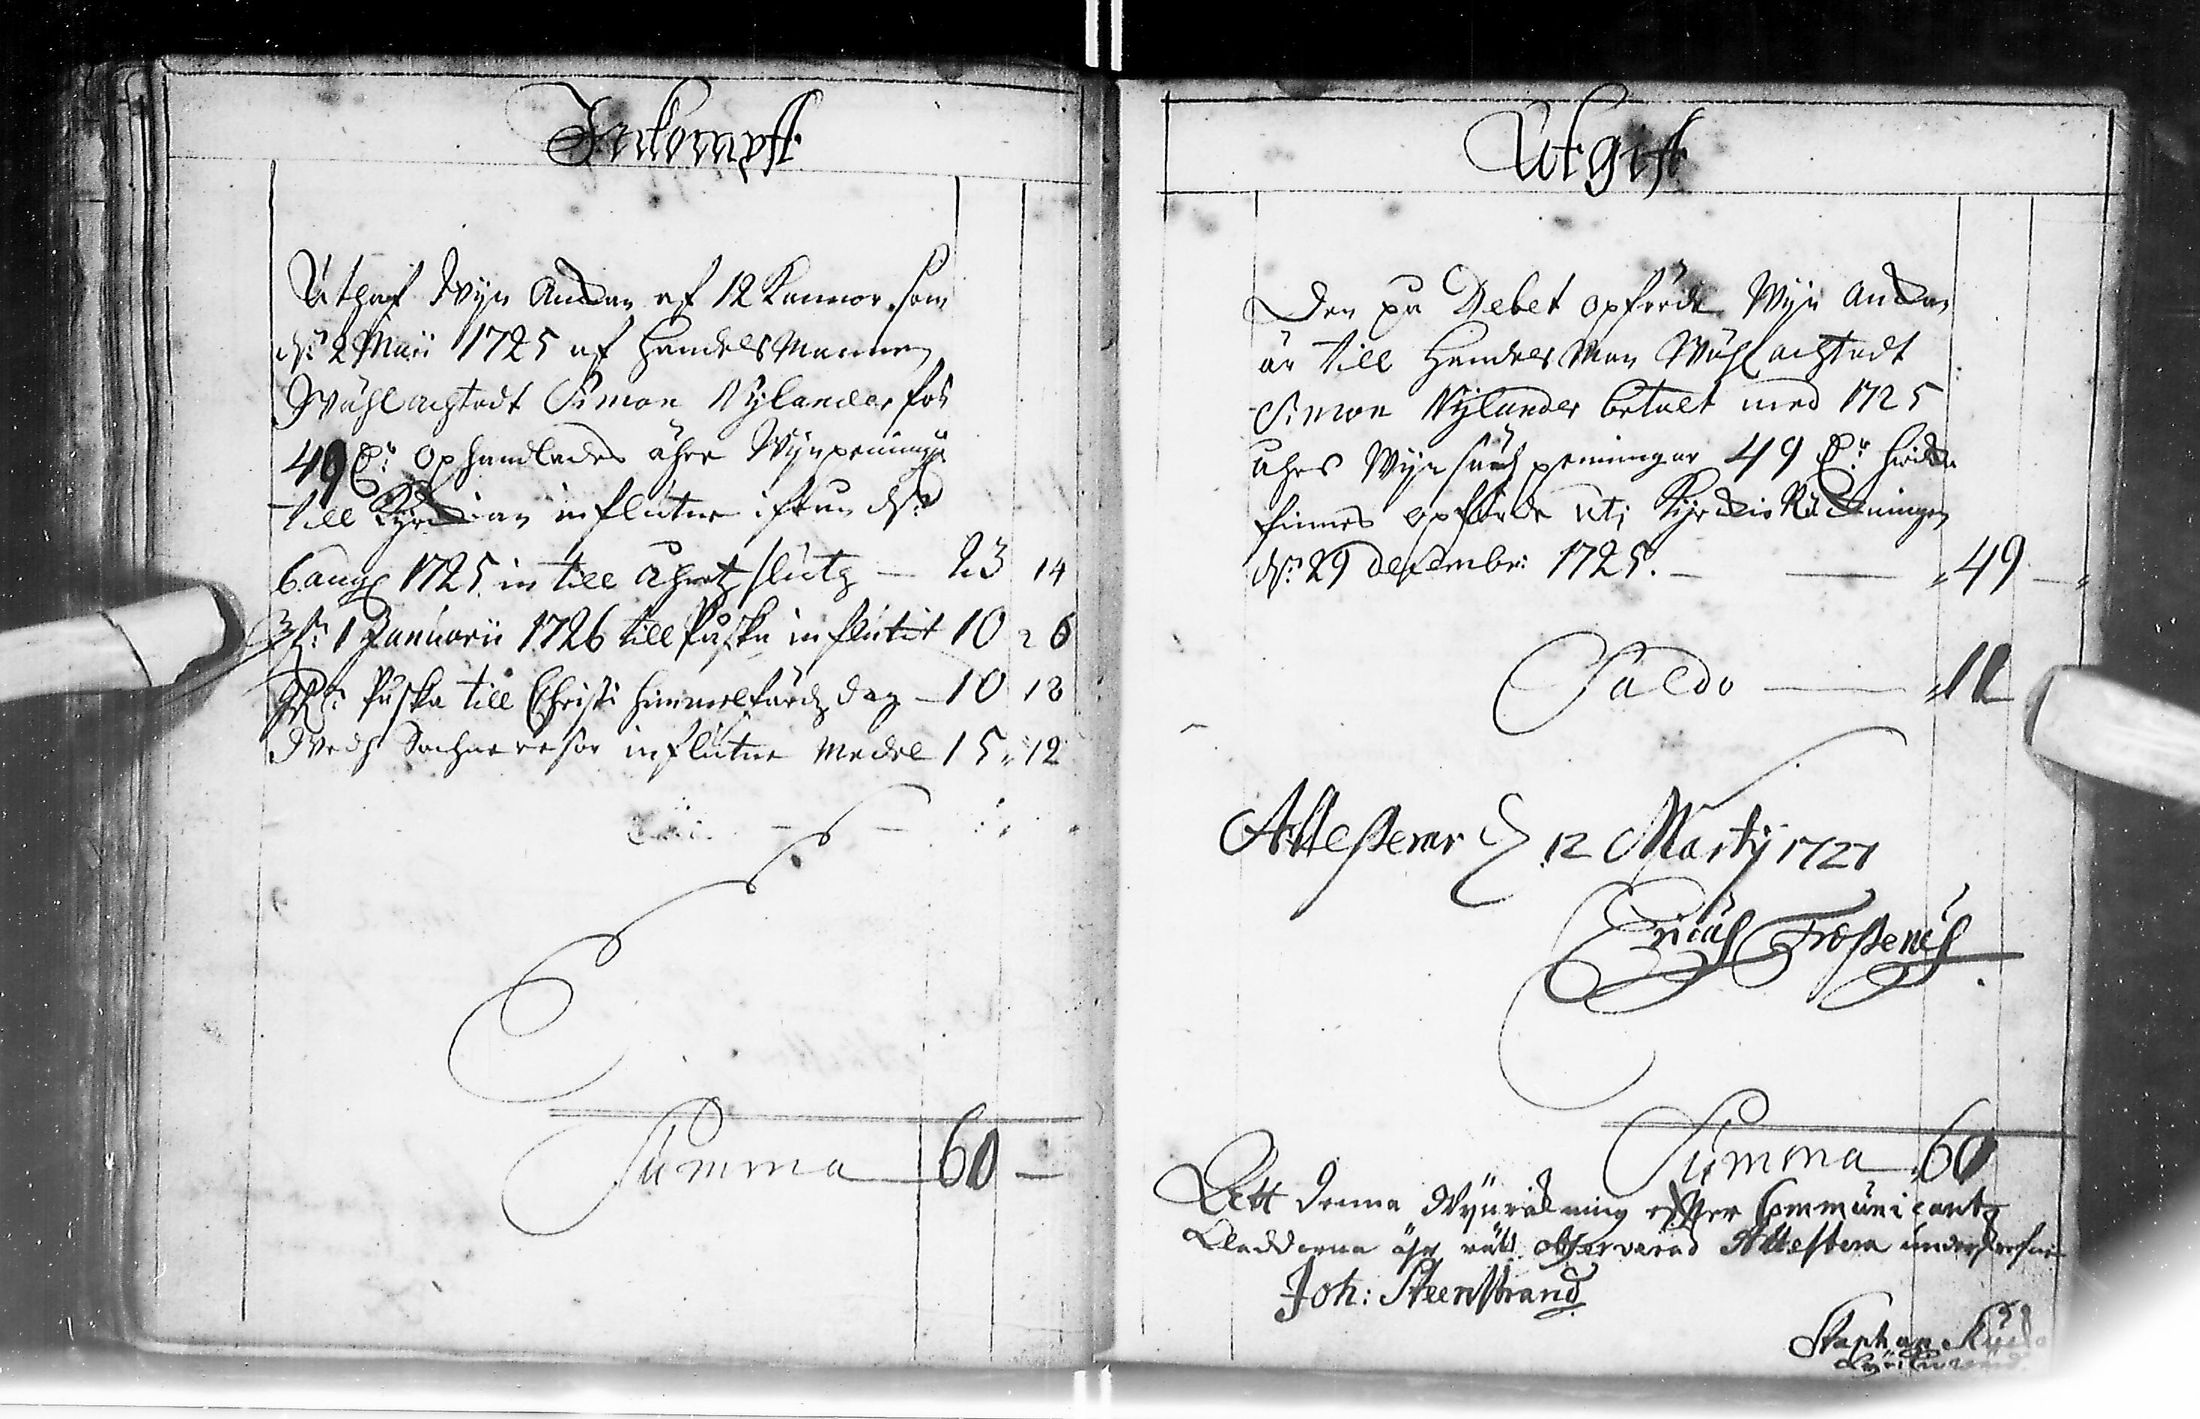 Inkompst
Uthaf Wyn Anckar af 12 Kannor som
d: 2 Maii 1725 af Handels Mannen
Wählachtadt Simon Nylander för
49 ophandlades ähre Wynpeninga
till Kyrckian influtne ifrån d:
6 aug 1725 in till åhretz slutz — 23 14
1 Januarii 1726 till Påska influtit 10 26
Påska till Christi himmelfärdz dag — 10 12
Wedh Sochne resor influtne medel 15 " 12
Summa 60 —
Utgift
Den på Debet opförde Wyn Anckar
är till Handels Man Wählachtadt
Simon Nylander betalt med 1725
åhrs Wyn peningar 49
finnes opförde uti Kyrckio Räckningen
d: 29 Decembr: 1725. — — " 49 — "
Saldo — " 11
Attesterar d 12 Martij 1727
Ericus Frosterus
Summa 60
Att denna Wynräkning efter Communicantz
Längderna ähr rätt observerad Attestera underskrefne
Joh: Steenstrand
Staphan